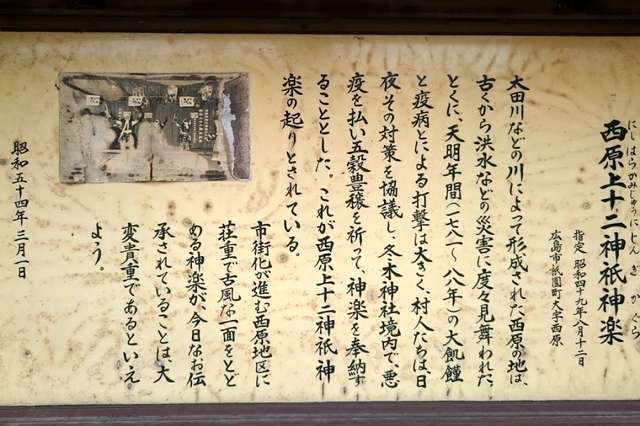 西原上十二神祇神楽
にしはらかみじゅうにじんぎかぐら
指定 昭和四十九年八月十二日
広島市祇園町大字西原
太田川などの川によって形成された西原の地は、
古くから洪水などの災害に度々見舞われた。
とくに、天明年間(一七八一〜八八年)の大飢饉
と疫病とによる打撃は大きく、村人たちは日
夜その対策を協議し、冬木神社境内で、悪
疫を払い五穀豊穣を祈って、神楽を奉納す
ることとした。これが西原上十二神祇神
楽の起りとされている。
市街化が進む西原地区に
荘重で古風な一面をとど
める神楽が、今日なお伝
承されていることは、大
変貴重であるといえ
よう。
昭和五十四年三月一日